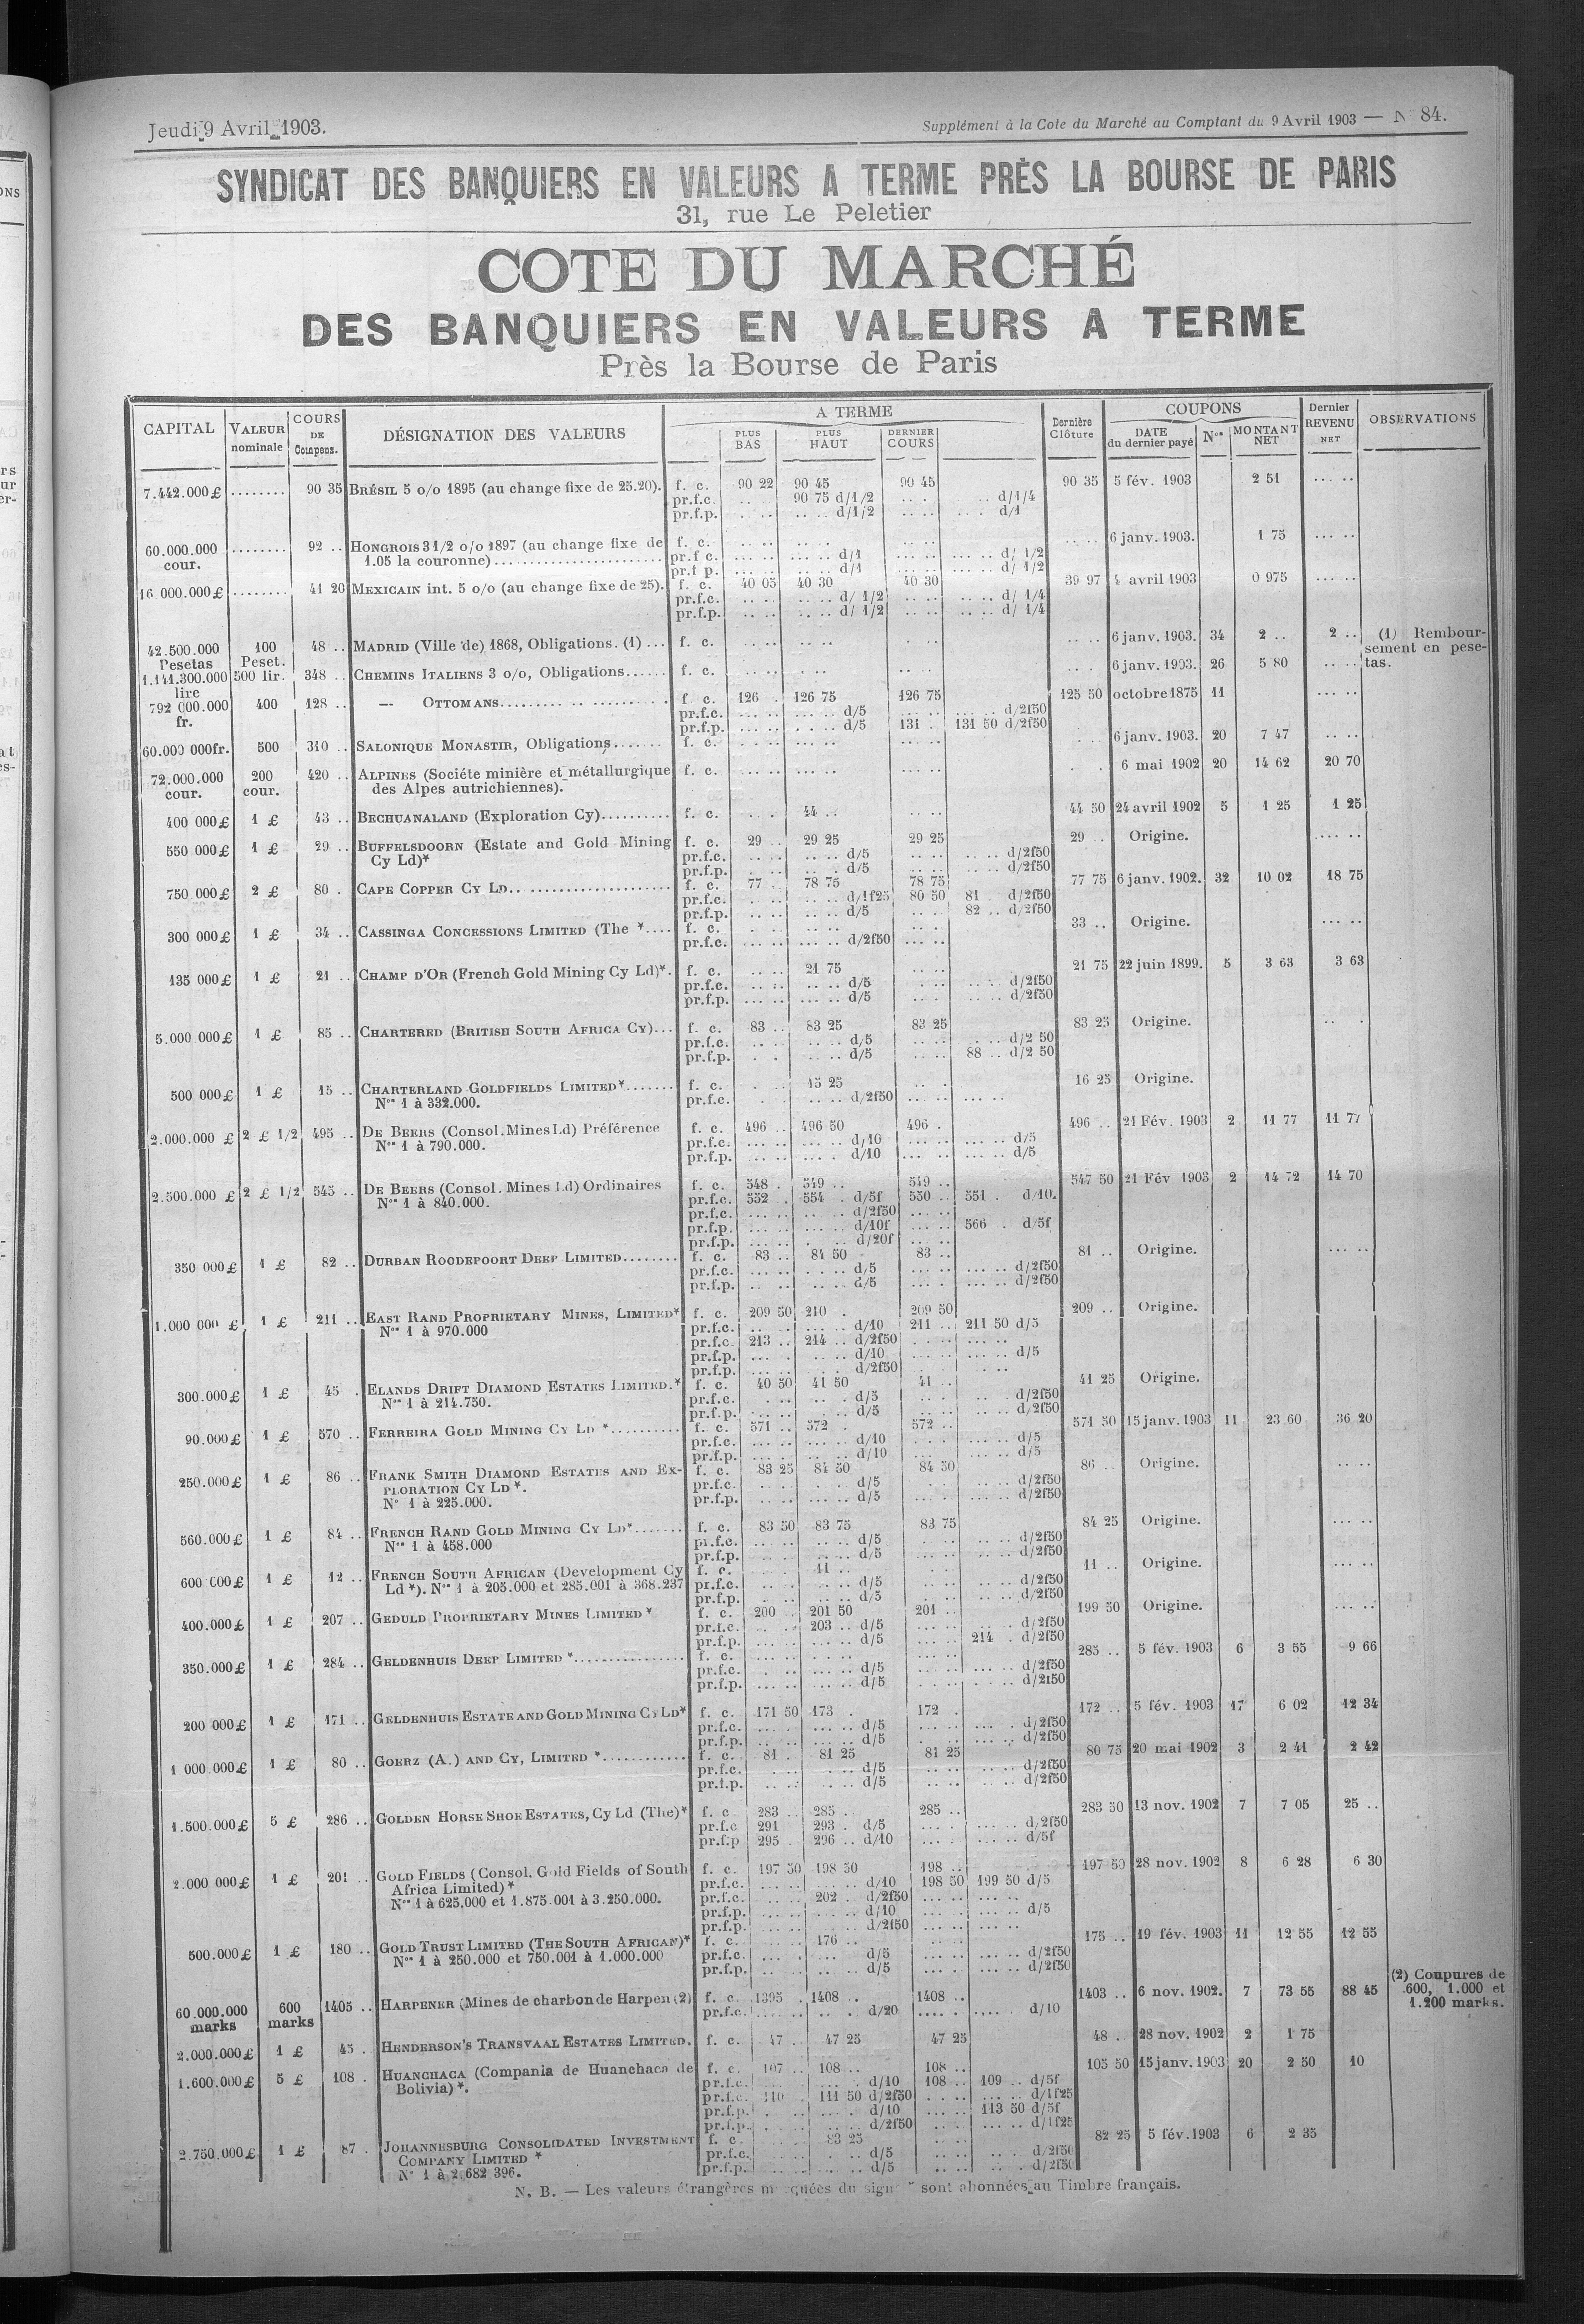 Jeudi 9 Avril 1903.
Supplément à la Cote du Marché au Comptant du 9 Avril 1903 — N° 84.
SYNDICAT DES BANQUIERS EN VALEURS A TERME PRÈS LA BOURSE DE PARIS
31, rue Le Peletier
COTE DU MARCHÉ
DES BANQUIERS EN VALEURS A TERME
Près la Bourse de Paris
CAPITAL VALEUR nominale COURS DE Compens. DÉSIGNATION DES VALEURS A TERME PLUS BAS PLUS HAUT DERNIER COURS Dernière Clôture COUPONS DATE du dernier payé Nos MONTANT NET Dernier REVENU NET OBSERVATIONS
7.442.000 £ ........ 90 35 BRÉSIL 5 o/o 1895 (au change fixe de 25.20). f. c. 90 22 90 45 90 45 90 35 5 fév. 1903 2 51 ... ..
pr.f.c. .. .. 90 75 d/1/2 .. . .. d/1/4
pr.f.p. .. .. d/1/2 .. .. d/1
60.000.000 cour. ........ 92 .. HONGROIS 3 1/2 o/o 1897 (au change fixe de f. c. 6 janv. 1903. 1 75 ... ..
1.05 la couronne) pr.f.c. d/1 d/ 1/2
pr.f.p. d/1 d/ 1/2
16.000.000 £ ........ 41 20 MEXICAIN int. 5 o/o (au change fixe de 25). f. c. 40 05 40 30 40 30 39 97 4 avril 1903 0 975 ... ..
pr.f.c. d/ 1/2 d/ 1/4
pr.f.p. d/ 1/2 d/ 1/4
42.500.000 Pesetas 100 Peset. 48 .. MADRID (Ville de) 1868, Obligations. (1) ... f. c. 6 janv. 1903. 34 2 .. 2 .. (1) Remboursement en pesetas.
1.141.300.000 lire 500 lir. 348 .. CHEMINS ITALIENS 3 o/o, Obligations...... f. c. 6 janv. 1903. 26 5 80
792 000.000 fr. 400 128 .. — OTTOMANS f. c. 126 . 126 75 126 75 125 50 octobre 1875 11
pr.f.c. d/5 d/2f50
pr.f.p. d/5 131 . 131 50 d/2f50
60.000 000 fr. 500 310 .. SALONIQUE MONASTIR, Obligations....... f. c. 6 janv. 1903. 20 7 47
72.000.000 cour. 200 cour. 420 .. ALPINES (Sociéte minière et métallurgique f. c. 6 mai 1902 20 14 62 20 70
des Alpes autrichiennes).
400 000 £ 1 £ 43 .. BECHUANALAND (Exploration Cy).......... f. c. 44 .. 44 50 24 avril 1902 5 1 25 1 25
550 000 £ 1 £ 29 .. BUFFELSDOORN (Estate and Gold Mining f. c. 29 .. 29 25 29 25 29 .. Origine.
Cy Ld)* pr.f.c. d/5 d/2f50
pr.f.p. d/5 d/2f50
750 000 £ 2 £ 80 . CAPE COPPER CY LD f. c. 77 . 78 75 78 75 77 75 6 janv. 1902. 32 10 02 18 75
pr.f.c. d/1f25 80 50 81 d/2f50
pr.f.p. d/5 82 .. d/2f50
300 000 £ 1 £ 34 .. CASSINGA CONCESSIONS LIMITED (The *.... f. c. 33 .. Origine.
pr.f.c. d/2f50
135 000 £ 1 £ 21 .. CHAMP D'OR (French Gold Mining Cy Ld)*. f. c. 21 75 21 75 22 juin 1899. 5 3 63 3 63
pr.f.c. d/5 d/2f50
pr.f.p. d/5 d/2f50
5.000 000 £ 1 £ 85 .. CHARTERED (BRITISH SOUTH AFRICA CY)... f. c. 83 .. 83 25 83 25 83 25 Origine.
pr.f.c. d/5 d/2 50
pr.f.p. d/5 88 .. d/2 50
500 000 £ 1 £ 15 .. CHARTERLAND GOLDFIELDS LIMITED*....... f. c. 15 25 16 25 Origine.
Nos 1 à 332.000. pr.f.c. d/2f50
2.000.000 £ 2 £ 1/2 495 .. DE BEERS (Consol. Mines Ld) Préférence f. c. 496 .. 496 50 496 . 496 .. 21 Fév. 1903 2 11 77 11 77
Nos 1 à 790.000. pr.f.c. d/10 d/5
pr.f.p. d/10 d/5
2.500.000 £ 2 £ 1/2 545 .. DE BEERS (Consol. Mines Ld) Ordinaires f. c. 548 . 549 .. 549 .. 547 50 21 Fév 1903 2 14 72 14 70
Nos 1 à 840.000. pr.f.c. 552 . 554 . d/5f 550 .. 551 . d/10.
pr.f.c. d/2f50
pr.f.p. d/10f 566 . d/5f
pr.f.p. d/20f
350 000 £ 1 £ 82 .. DURBAN ROODEPOORT DEEP LIMITED........ f. c. 83 .. 84 50 83 .. 81 .. Origine.
pr.f.c. d/5 d/2f50
pr.f.p. d/5 d/2f50
1.000 000 £ 1 £ 211 .. EAST RAND PROPRIETARY MINES, LIMITED* f. c. 209 50 210 . 209 50 209 .. Origine.
Nos 1 à 970.000 pr.f.c. d/10 211 .. 211 50 d/5
pr.f.c. 213 .. 214 .. d/2f50
pr.f.p. d/10 d/5
pr.f.p. d/2f50
300.000 £ 1 £ 45 . ELANDS DRIFT DIAMOND ESTATES LIMITED.* f. c. 40 50 41 50 41 .. 41 25 Origine.
Nos 1 à 214.750. pr.f.c. d/5 d/2f50
pr.f.p. d/5 d/2f50
90.000 £ 1 £ 570 .. FERREIRA GOLD MINING CY LD *.......... f. c. 571 .. 572 . 572 .. 571 50 15 janv. 1903 11 23 60 36 20
pr.f.c. d/10 d/5
pr.f.p. d/10 d/5
250.000 £ 1 £ 86 .. FRANK SMITH DIAMOND ESTATES AND EX- f. c. 83 25 84 50 84 50 86 .. Origine.
PLORATION CY LD *. pr.f.c. d/5 d/2f50
N° 1 à 225.000. pr.f.p. d/5 d/2f50
560.000 £ 1 £ 84 .. FRENCH RAND GOLD MINING CY LD*....... f. c. 83 50 83 75 83 75 84 25 Origine.
Nos 1 à 458.000 pr.f.c. d/5 d/2f50
pr.f.p. d/5 d/2f50
600 000 £ 1 £ 12 .. FRENCH SOUTH AFRICAN (Development Cy f. c. 11 .. 11 .. Origine.
Ld *). Nos 1 à 205.000 et 285.001 à 368.237 pr.f.c. d/5 d/2f50
pr.f.p. d/5 d/2f50
400.000 £ 1 £ 207 .. GEDULD PROPRIETARY MINES LIMITED * f. c. 200 .. 201 50 201 .. 199 50 Origine.
pr.f.c. 203 .. d/5 d/2f50
pr.f.p. d/5 214 . d/2f50
350.000 £ 1 £ 284 .. GELDENHUIS DEEP LIMITED * f. c. 285 .. 5 fév. 1903 6 3 55 9 66
pr.f.c. d/5 d/2f50
pr.f.p. d/5 d/2f50
200 000 £ 1 £ 171 .. GELDENHUIS ESTATE AND GOLD MINING CY LD* f. c. 171 50 173 . 172 . 172 .. 5 fév. 1903 17 6 02 12 34
pr.f.c. d/5 d/2f50
pr.f.p. d/5 d/2f50
1 000.000 £ 1 £ 80 .. GOERZ (A.) AND CY, LIMITED *............ f. c. 81 . 81 25 81 25 80 75 20 mai 1902 3 2 41 2 42
pr.f.c. d/5 d/2f50
pr.f.p. d/5 d/2f50
1.500.000 £ 5 £ 286 .. GOLDEN HORSE SHOE ESTATES, Cy Ld (The)* f. c. 283 .. 285 . 285 .. 283 50 13 nov. 1902 7 7 05 25 ..
pr.f.c 291 293 . d/5 d/2f50
pr.f.p 295 . 296 .. d/10 d/5f
2.000 000 £ 1 £ 201 .. GOLD FIELDS (Consol. Gold Fields of South f. c. 197 50 198 50 198 .. 197 50 28 nov. 1902 8 6 28 6 30
Africa Limited)* pr.f.c. d/10 198 50 199 50 d/5
Nos 1 à 625.000 et 1.875.001 à 3.250.000. pr.f.c. 202 . d/2f50
pr.f.p. d/10 d/5
pr.f.p. d/2f50
500.000 £ 1 £ 180 .. GOLD TRUST LIMITED (THE SOUTH AFRICAN)* f. c. 176 .. 175 .. 19 fév. 1903 11 12 55 12 55
Nos 1 à 250.000 et 750.001 à 1.000.000 pr.f.c. d/5 d/2f50
pr.f.p. d/5 d/2f50
60.000.000 marks 600 marks 1405 .. HARPENER (Mines de charbon de Harpen (2) f. c. 1395 . 1408 .. 1408 .. 1403 .. 6 nov. 1902. 7 73 55 88 45 (2) Coupures de 600, 1.000 et 1.200 marks.
pr.f.c. d/20 d/10
2.000.000 £ 1 £ 45 . HENDERSON'S TRANSVAAL ESTATES LIMITED. f. c. 47 .. 47 25 47 25 48 .. 28 nov. 1902 2 1 75
1.600.000 £ 5 £ 108 . HUANCHACA (Compania de Huanchaca de f. c. 107 .. 108 .. 108 .. 105 50 15 janv. 1903 20 2 50 10
Bolivia) *. pr.f.c. d/10 108 .. 109 .. d/5f
pr.f.c. 110 . 111 50 d/2f50 d/1f25
pr.f.p. d/10 113 50 d/5f
pr.f.p. d/2f50 d/1f25
2.750.000 £ 1 £ 87 . JOHANNESBURG CONSOLIDATED INVESTMENT f. c. 83 25 82 25 5 fév. 1903 6 2 35
COMPANY LIMITED * pr.f.c. d/5 d/2f50
N° 1 à 2 682 396. pr.f.p. d/5 d/2f50
N. B. — Les valeurs étrangères marquées du signe * sont abonnées au Timbre français.